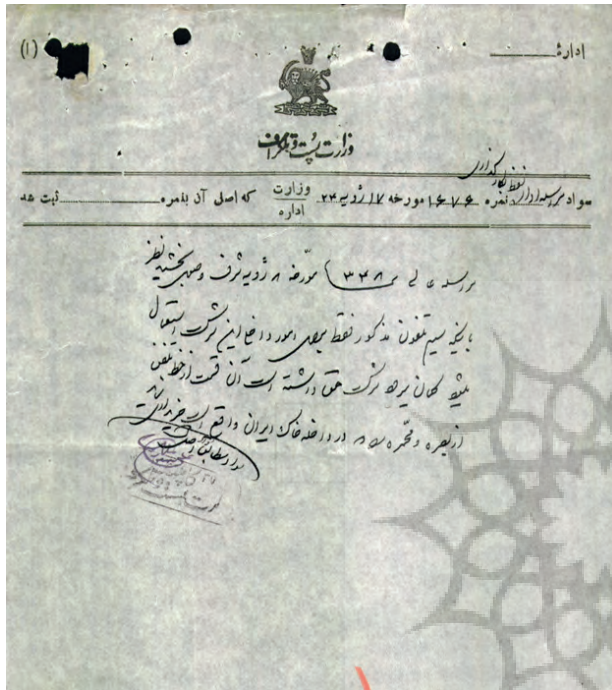 (۱)
ادارهٔ
وزارت پست و تلگراف
سواد مراسله اداره نفط بکارگذاری نمره ۱۶۷۶ مورخه ۱۷ ژویه ۲۳ وزارت اداره که اصل آن بنمره ثبت شد
مراسله عالی ۳۳۸ مورخه ۸ ژویه شرف وصول بخشید نظر
باینکه سیم تلفون مذکور فقط برای امور داخلی این شرکت استعمال
میشود گمان میرود شرکت حق داشته است آن قسمت از خط تلفن
از بصره و محمره که در داخله خاک ایران واقع است خریداری نماید
سواد مطابق اصل است